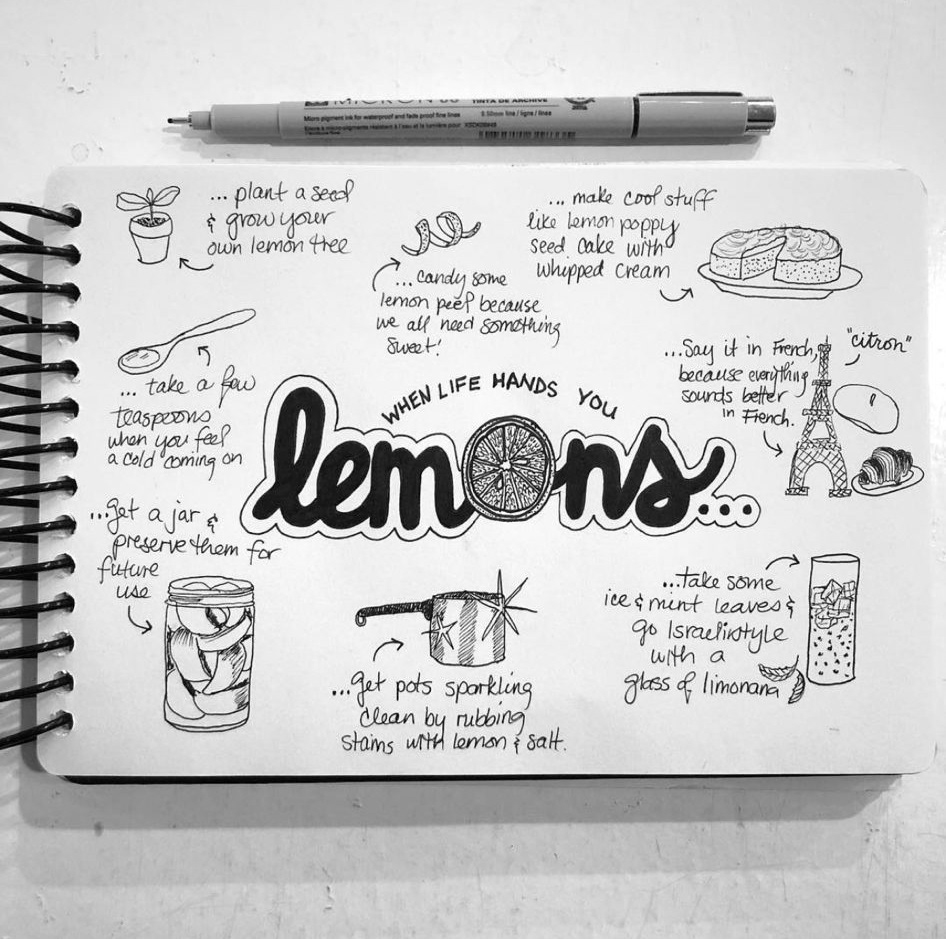 MICRON
TINTA DE ARCHIVE
Micro pigment ink for waterproof and fade proof fine lines
0.50mm line / ligne / lines
Encre à micro-pigments résistant à l'eau et la lumière pour
... plant a seed
& grow your
own lemon tree
... candy some
lemon peel because
we all need something
sweet!
... make cool stuff
like lemon poppy
seed cake with
whipped cream
...Say it in French,
because everything
sounds better
in French.
"citron"
... take a few
teaspoons
when you feel
a cold coming on
WHEN LIFE HANDS YOU
lemons...
...get a jar &
preserve them for
future
use
...get pots sparkling
clean by rubbing
stains with lemon & salt.
...take some
ice & mint leaves &
go Israeli style
with a
glass of limonana